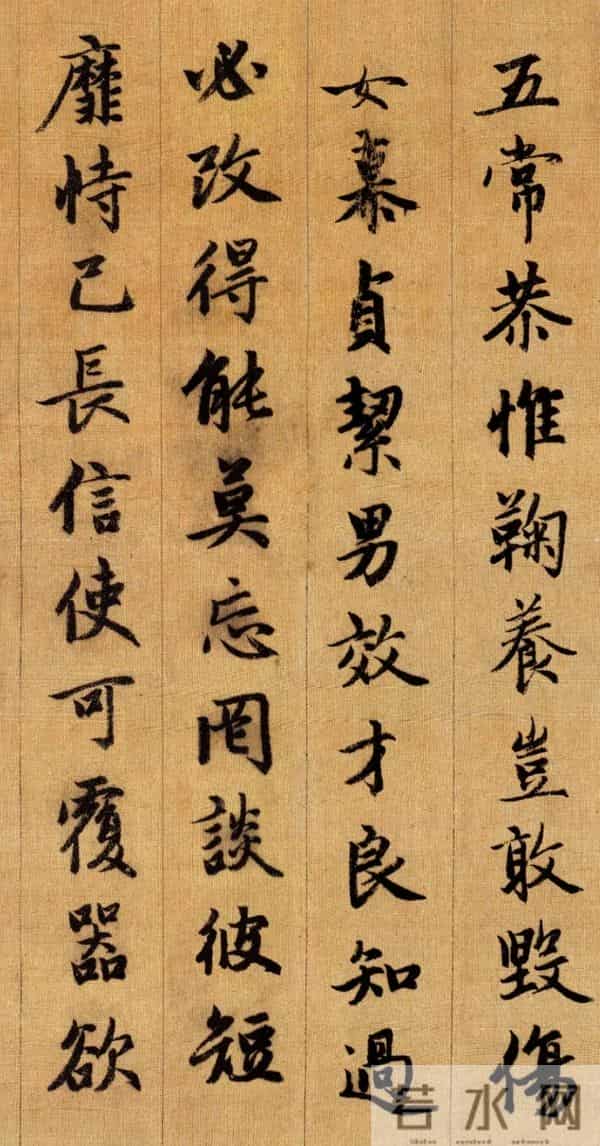 五常恭惟鞠養豈敢毀傷
女慕貞絜男效才良知過
必改得能莫忘罔談彼短
靡恃己長信使可覆器欲
若水网